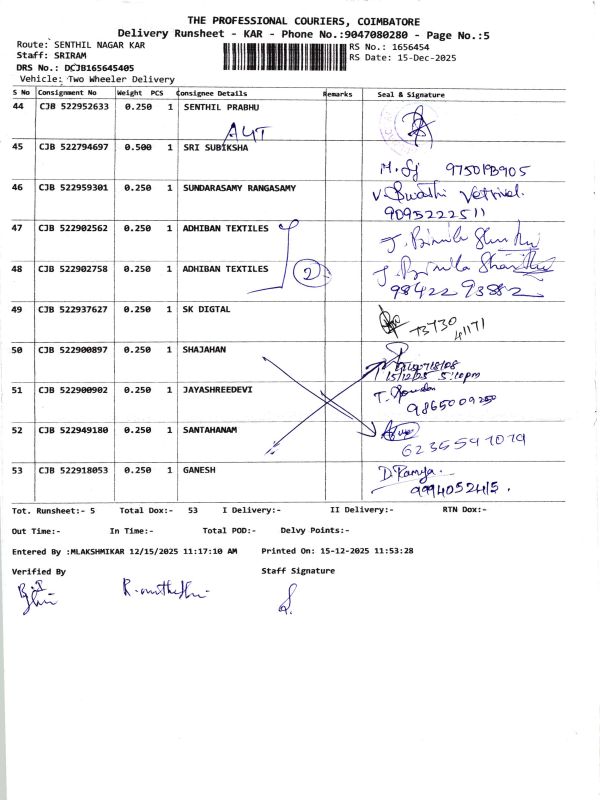 THE PROFESSIONAL COURIERS, COIMBATORE
Delivery Runsheet - KAR - Phone No.:9047080280 - Page No.:5
Route: SENTHIL NAGAR KAR RS No.: 1656454
Staff: SRIRAM RS Date: 15-Dec-2025
DRS No.: DCJB165645405
Vehicle: Two Wheeler Delivery
S No Consignment No Weight PCS Consignee Details Remarks Seal & Signature
44 CJB 522952633 0.250 1 SENTHIL PRABHU
45 CJB 522794697 0.500 1 SRI SUBIKSHA
46 CJB 522959301 0.250 1 SUNDARASAMY RANGASAMY
9095222511
47 CJB 522902562 0.250 1 ADHIBAN TEXTILES
48 CJB 522902758 0.250 1 ADHIBAN TEXTILES 2
98422 93882
49 CJB 522937627 0.250 1 SK DIGTAL
73730 41171
50 CJB 522900897 0.250 1 SHAJAHAN
15/12/25 5:10pm
51 CJB 522900902 0.250 1 JAYASHREEDEVI
9865009250
52 CJB 522949180 0.250 1 SANTAHANAM
6235597079
53 CJB 522918053 0.250 1 GANESH D. Ramya.
9994052415.
Tot. Runsheet:- 5 Total Dox:- 53 I Delivery:- II Delivery:- RTN Dox:-
Out Time:- In Time:- Total POD:- Delvy Points:-
Entered By :MLAKSHMIKAR 12/15/2025 11:17:10 AM Printed On: 15-12-2025 11:53:28
Verified By Staff Signature